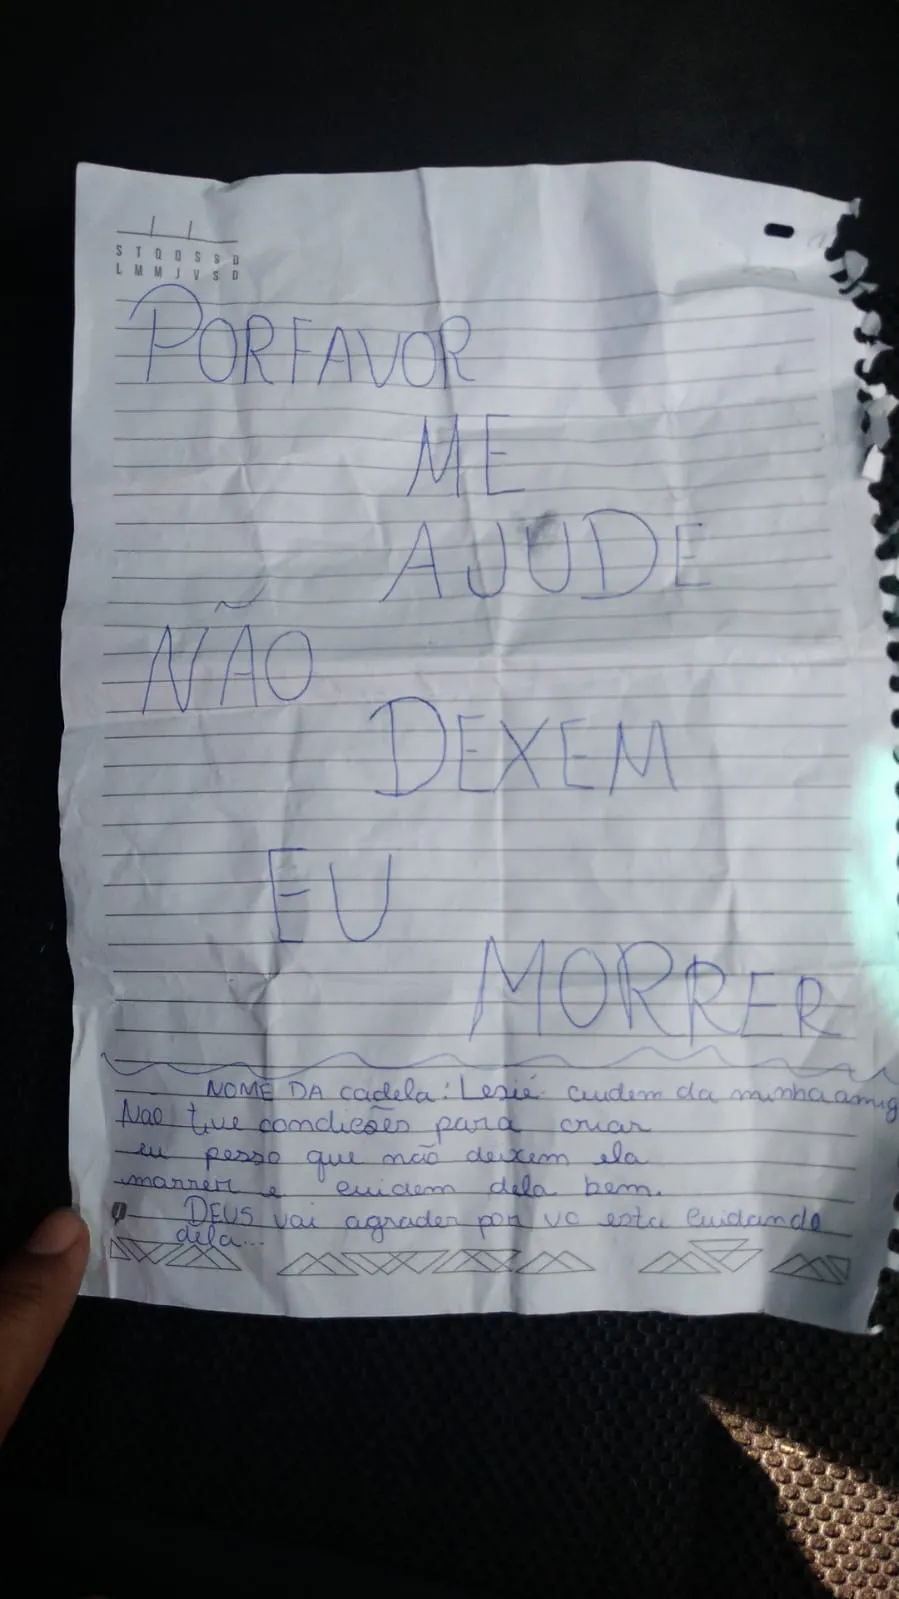 S T Q Q S S D
L M M J V S D
PORFAVOR
ME
AJUDE
NÃO
DEXEM
EU
MORRER
NOME DA cadela: Lesié cuidem da minha amig
Nao tive condições para criar
eu pesso que não deixem ela
morrer e cuidem dela bem.
DEUS vai agrader por vc esta cuidando
dela...